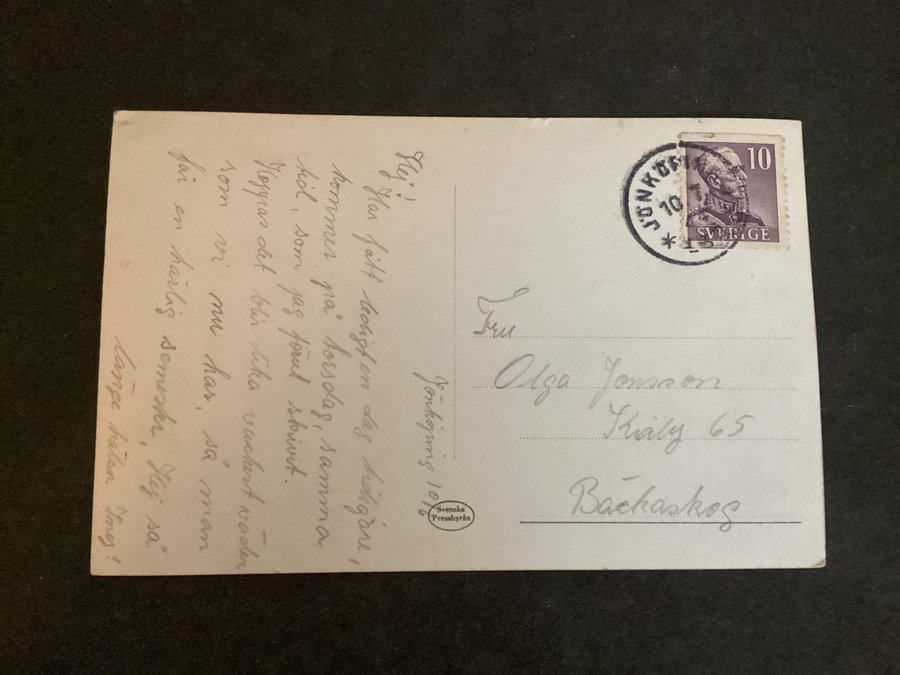 Jönköping 10/6
Hej!
Har fått ledigt en dag tidigare,
kommer på torsdag, samma
tid, som jag förut skrivit.
Hoppas det blir lika vackert väder
som vi nu har, så man
får en härlig semester, Hej så
länge hälsn Inez!
Svenska
Pressbyrån
JÖNKÖPING
10
10
SVERIGE
Fru
Olga Jonsson
Kiaby 65
Bäckaskog